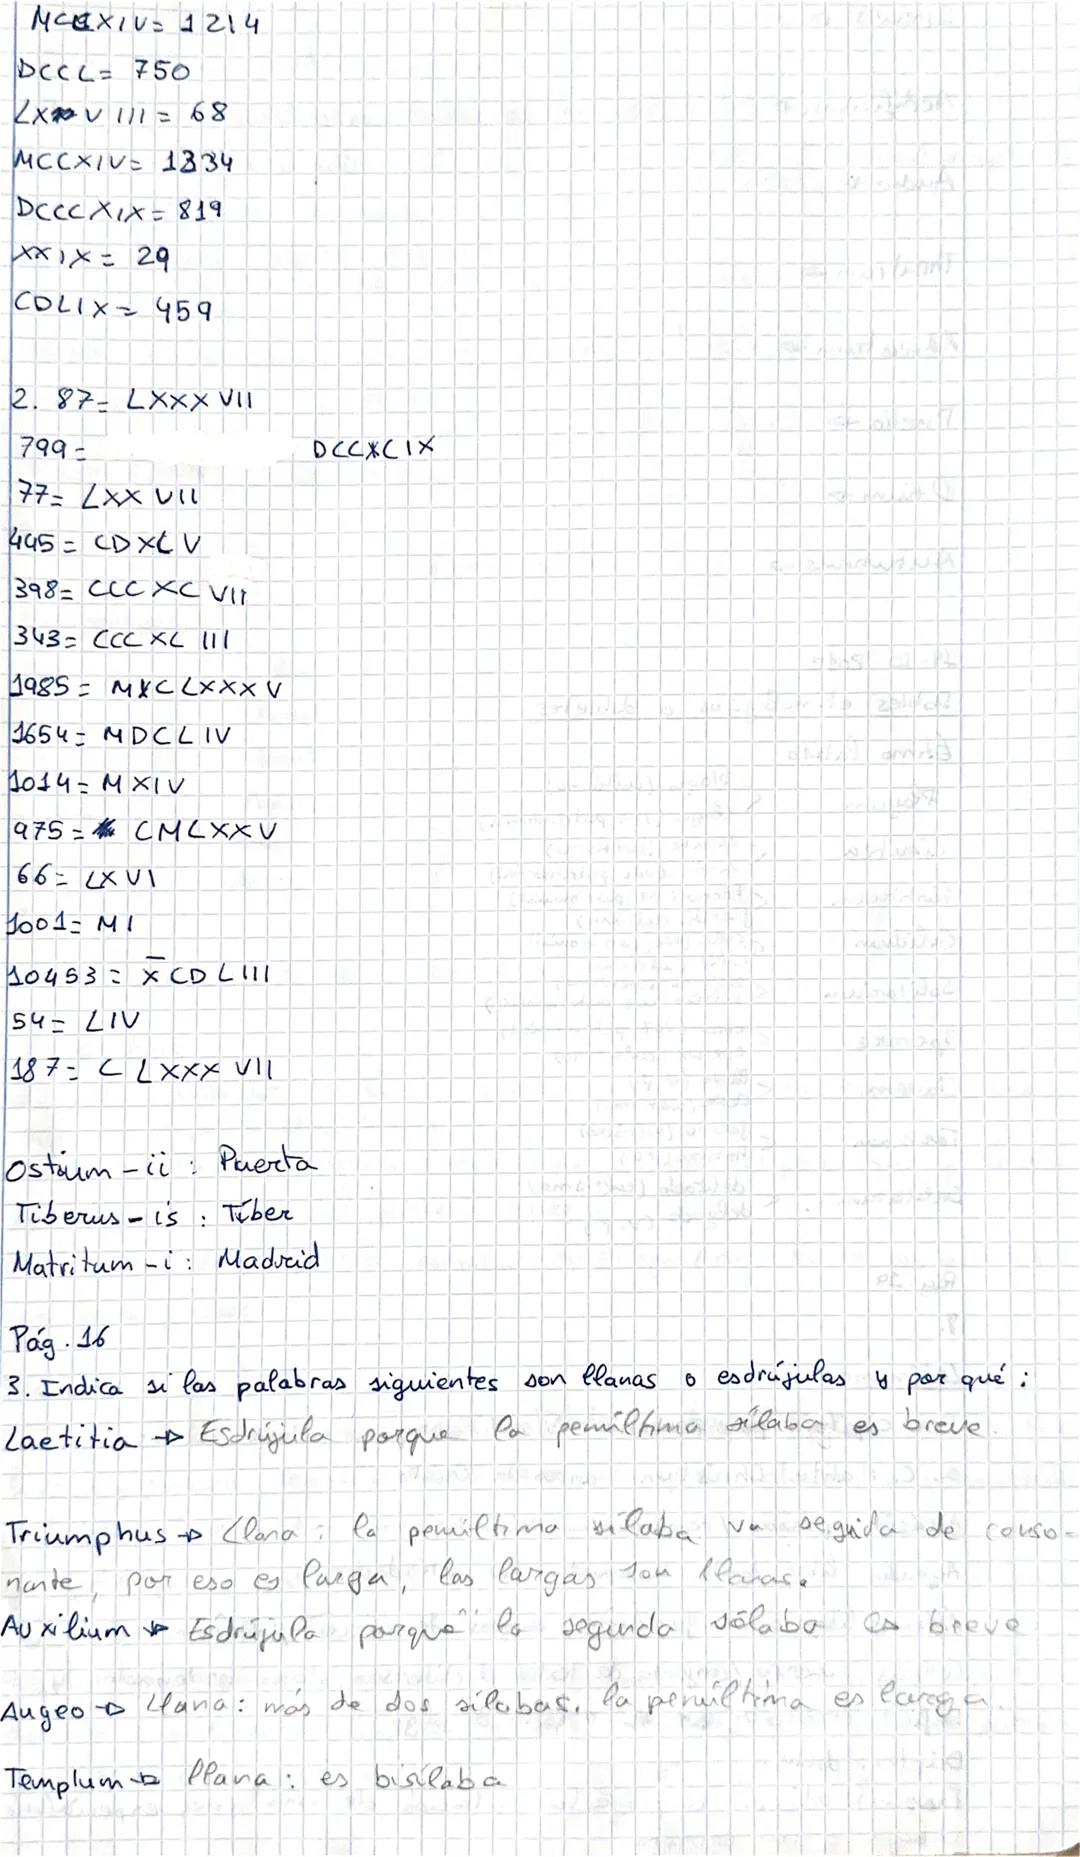 MCCXIV= 1214
DCCL= 750
LXVIII= 68
MCCXIV= 1334
DCCCXIX= 819
XXIX= 29
CDLIX= 459
2. 87= LXXXVII
799= DCCXCIX
77= LXXVII
445= CDXLV
398= CCCXCVII
343= CCCXLIII
1985= MXCLXXXV
1654= MDCLIV
1014= MXIV
975= CMLXXV
66= LXVI
1001= MI
10453= X̅CDLIII
54= LIV
187= CLXXXVII
Ostium -ii : Puerta
Tiberus - is : Tíber
Matritum -i : Madrid
Pág. 16
3. Indica si las palabras siguientes son llanas o esdrújulas y por qué :
Laetitia → Esdrújula porque la penúltima sílaba es breve.
Triumphus → Llana : la penúltima sílaba va seguida de conso-
nante, por eso es larga, las largas son llanas.
Auxilium → Esdrújula porque la segunda sílaba es breve
Augeo → Llana : más de dos sílabas. la penúltima es larga.
Templum → llana : es bisílaba